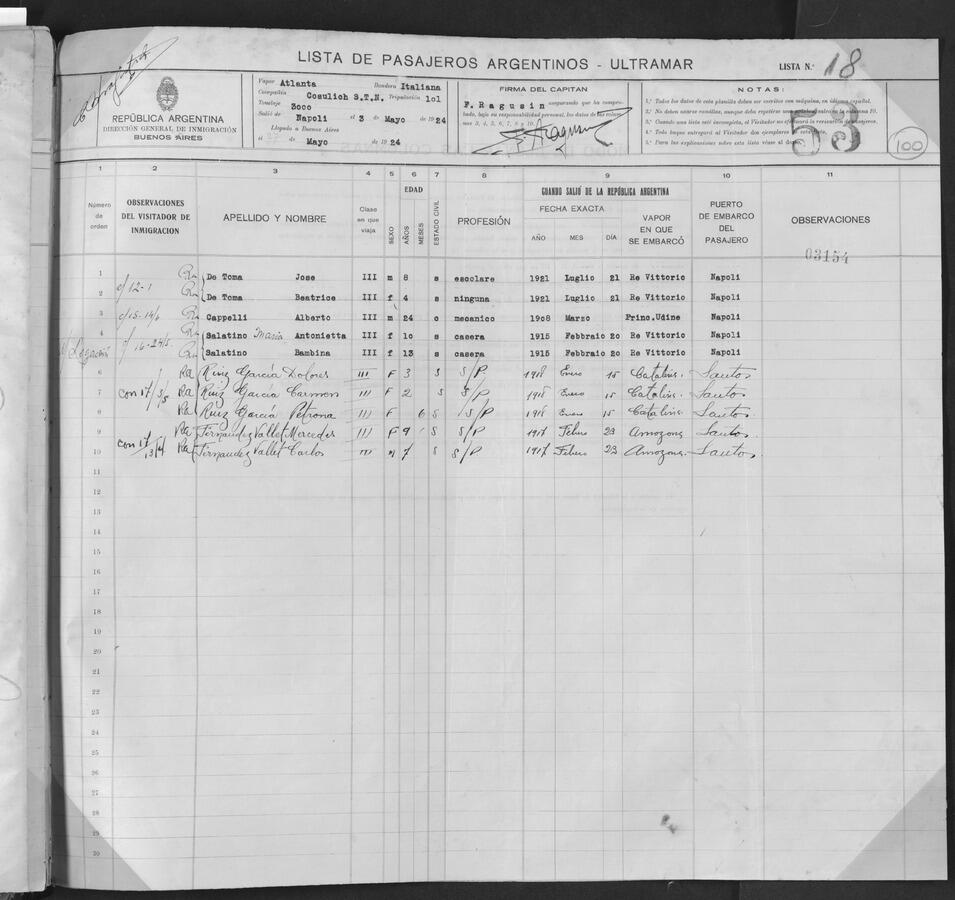 LISTA DE PASAJEROS ARGENTINOS - ULTRAMAR
LISTA N.° 18
REPÚBLICA ARGENTINA
DIRECCIÓN GENERAL DE INMIGRACIÓN
BUENOS AIRES
Vapor Atlanta Bandera Italiana
Compañía Cosulich S.T.N. Tripulación 101
Tonelaje 3000
Salió de Napoli el 3 de Mayo de 1924
Llegado a Buenos Aires
el de Mayo de 1924
FIRMA DEL CAPITAN
F. Ragusin asegurando que ha comprobado, bajo su responsabilidad personal, los datos de las columnas 3, 4, 5, 6, 7, 8, 9 y 10.
NOTAS:
1.ª Todos los datos de esta planilla deben ser escritos con máquina, en idioma español.
53
100
1 2 3 4 5 6 7 8 9 10 11
Número de orden
OBSERVACIONES DEL VISITADOR DE INMIGRACION
APELLIDO Y NOMBRE
Clase en que viaja
SEXO
EDAD
AÑOS
MESES
ESTADO CIVIL
PROFESIÓN
CUANDO SALIÓ DE LA REPÚBLICA ARGENTINA
FECHA EXACTA
AÑO MES DÍA
VAPOR EN QUE SE EMBARCÓ
PUERTO DE EMBARCO DEL PASAJERO
OBSERVACIONES
03154
1 De Toma Jose III m 8 s escolare 1921 Luglio 21 Re Vittorio Napoli
c/12-1
2 De Toma Beatrice III f 4 s ninguna 1921 Luglio 21 Re Vittorio Napoli
3 Cappelli Alberto III m 24 c mecanico 1908 Marzo Princ.Udine Napoli
4 Salatino Maria Antonietta III f 10 s casera 1915 Febbraio 20 Re Vittorio Napoli
5 Salatino Bambina III f 13 s casera 1915 Febbraio 20 Re Vittorio Napoli
6 Ra Ruiz Garcia Dolores III F 3 S S/P. 1918 Enero 15 Catalina. Santos
7 con 17/3/5 Ra Ruiz García Carmen III F 2 S S/P 1918 Enero 15 Catalina. Santos
8 Ra Ruiz García Petrona III F 6 S S/P 1918 Enero 15 Catalina. Santos
9 Ra Fernandez Vallet Mercedes III F 9 S S/P 1917 Febro 23 Amazona Santos
10 con 17/13/4 Ra Fernandez Vallet Carlos III M 7 S S/P 1917 Febro 23 Amazona. Santos
11
12
13
14
15
16
17
18
19
20
21
22
23
24
25
26
27
28
29
30